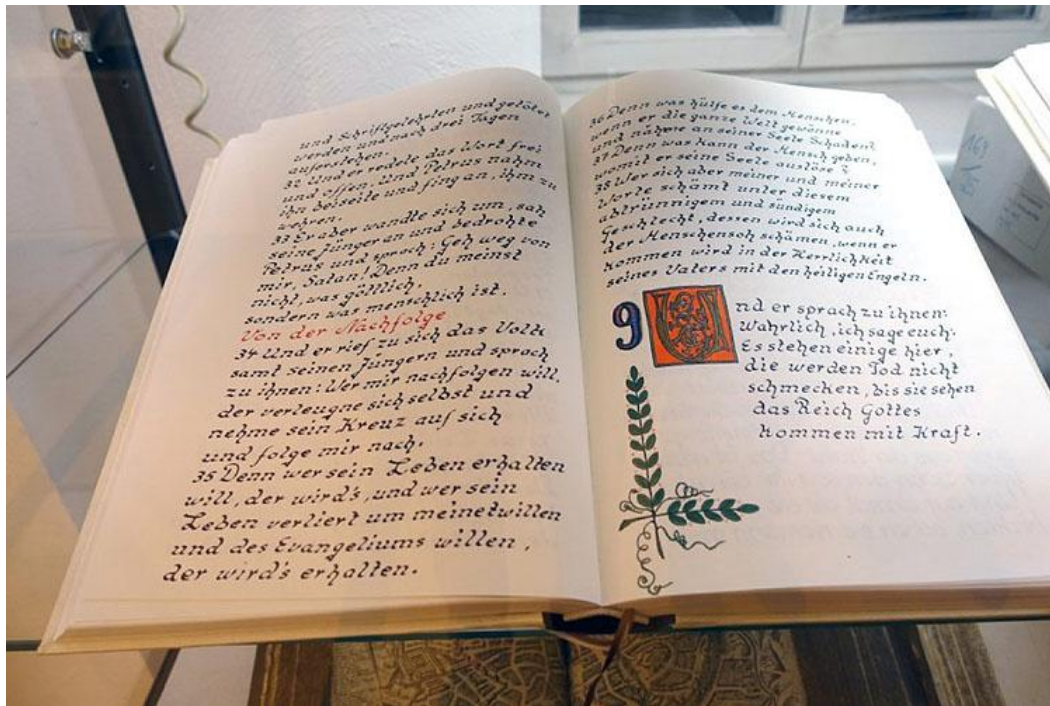 und Schriftgelehrten und getötet
werden und nach drei Tagen
auferstehen.
32 Und er redete das Wort frei
und offen. Und Petrus nahm
ihn beiseite und fing an, ihm zu
wehren.
33 Er aber wandte sich um, sah
seine Jünger an und bedrohte
Petrus und sprach: Geh weg von
mir, Satan! Denn du meinst
nicht, was göttlich,
sondern was menschlich ist.
Von der Nachfolge
34 Und er rief zu sich das Volk
samt seinen Jüngern und sprach
zu ihnen: Wer mir nachfolgen will,
der verleugne sich selbst und
nehme sein Kreuz auf sich
und folge mir nach.
35 Denn wer sein Leben erhalten
will, der wird's, und wer sein
Leben verliert um meinetwillen
und des Evangeliums willen,
der wird's erhalten.
36 Denn was hülfe es dem Menschen,
wenn er die ganze Welt gewönne
und nähme an seiner Seele Schaden?
37 Denn was kann der Mensch geben,
womit er seine Seele auslöse?
38 Wer sich aber meiner und meiner
Worte schämt unter diesem
abtrünnigem und sündigem
Geschlecht, dessen wird sich auch
der Menschensoh schämen, wenn er
kommen wird in der Herrlichkeit
seines Vaters mit den heiligen Engeln.
9 Und er sprach zu ihnen:
Wahrlich, ich sage euch:
Es stehen einige hier,
die werden Tod nicht
schmecken, bis sie sehen
das Reich Gottes
kommen mit Kraft.
164